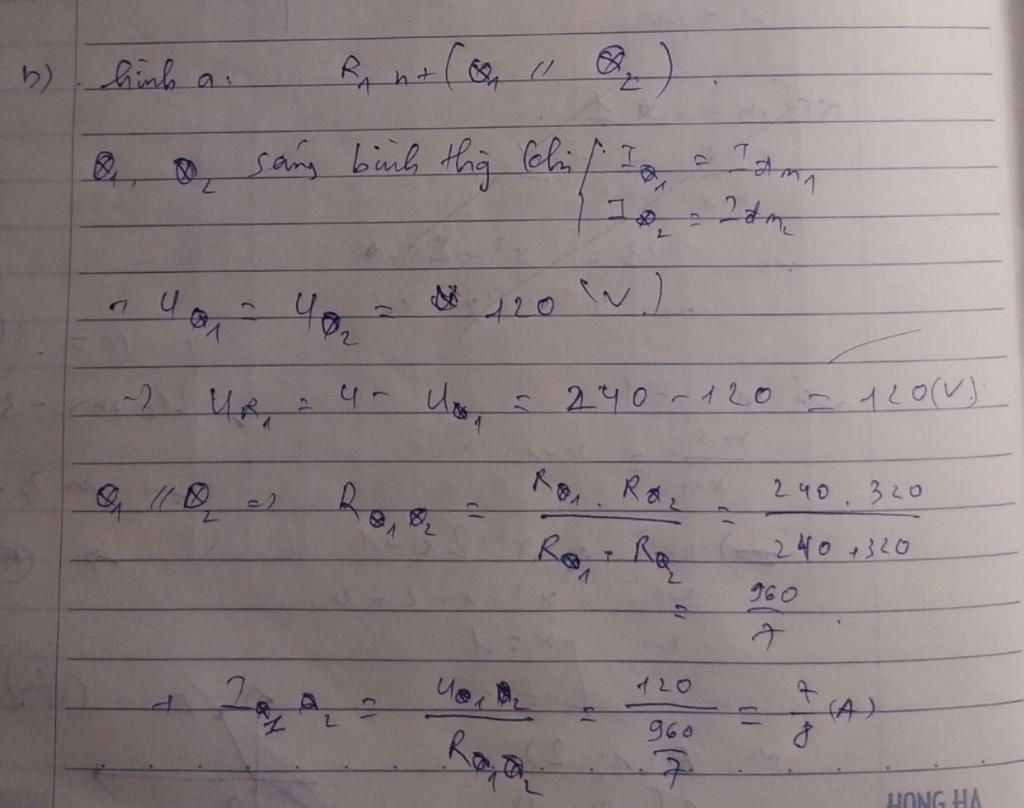 b) hình a: R₁ nt (⊗₁ // ⊗₂)
⊗₁, ⊗₂ sáng bình thg khi { I⊗₁ = Iđm₁
I⊗₂ = Iđm₂
U⊗₁ = U⊗₂ = 120 (V)
→ UR₁ = U - U⊗₁ = 240 - 120 = 120(V)
⊗₁ // ⊗₂ => R⊗₁⊗₂ = R⊗₁ . R⊗₂ / R⊗₁ + R⊗₂ = 240 . 320 / 240 + 320
= 960 / 7
+ I⊗₁⊗₂ = U⊗₁⊗₂ / R⊗₁⊗₂ = 120 / (960 / 7) = 7 / 8 (A)
HONG HA